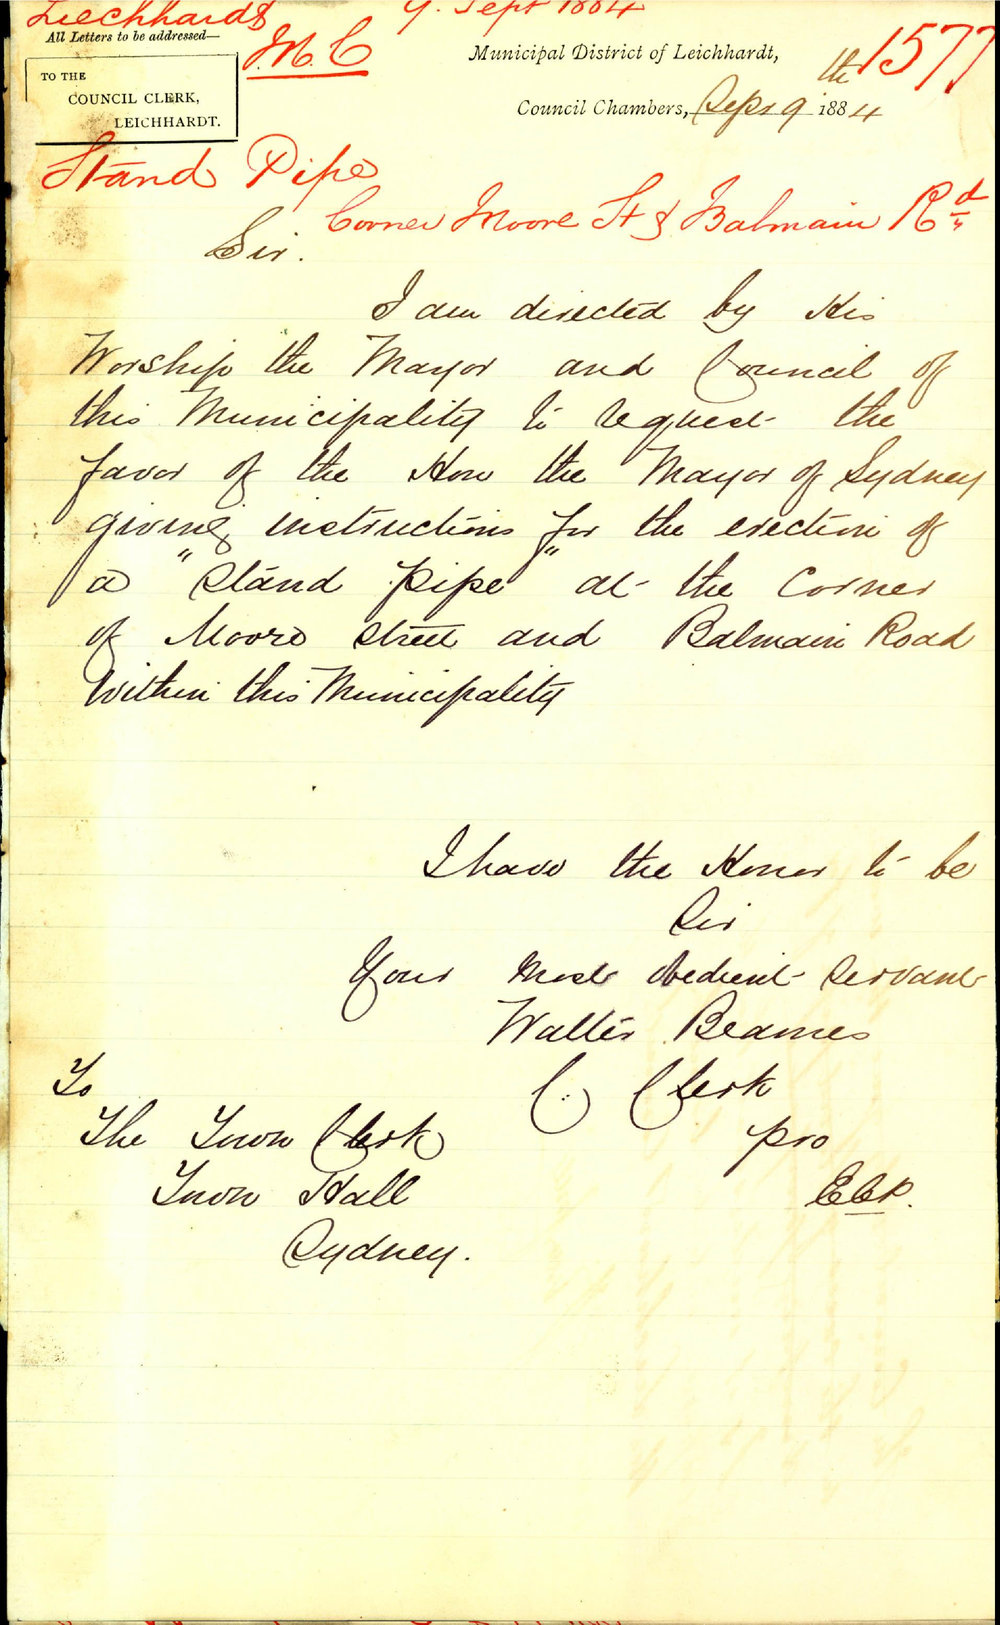 Liechhardt 9. Sept 1884
All Letters to be addressed—
M. C
TO THE
COUNCIL CLERK,
LEICHHARDT.
Municipal District of Leichhardt,
1577
Council Chambers, Sept 9th 1884
Stand Pipe
Corner Moore St & Balmain Rd
Sir.
I am directed by His
Worship the Mayor and Council of
this Municipality to request the
favor of the Hon the Mayor of Sydney
giving instructions for the erection of
a "Stand Pipe" at the Corner
of Moore Street and Balmain Road
Within this Municipality
I have the Honor to be
Sir
Your Most obedient Servant
Walter Beames
C. Clerk
pro
To
The Town Clerk
Town Hall
Sydney.